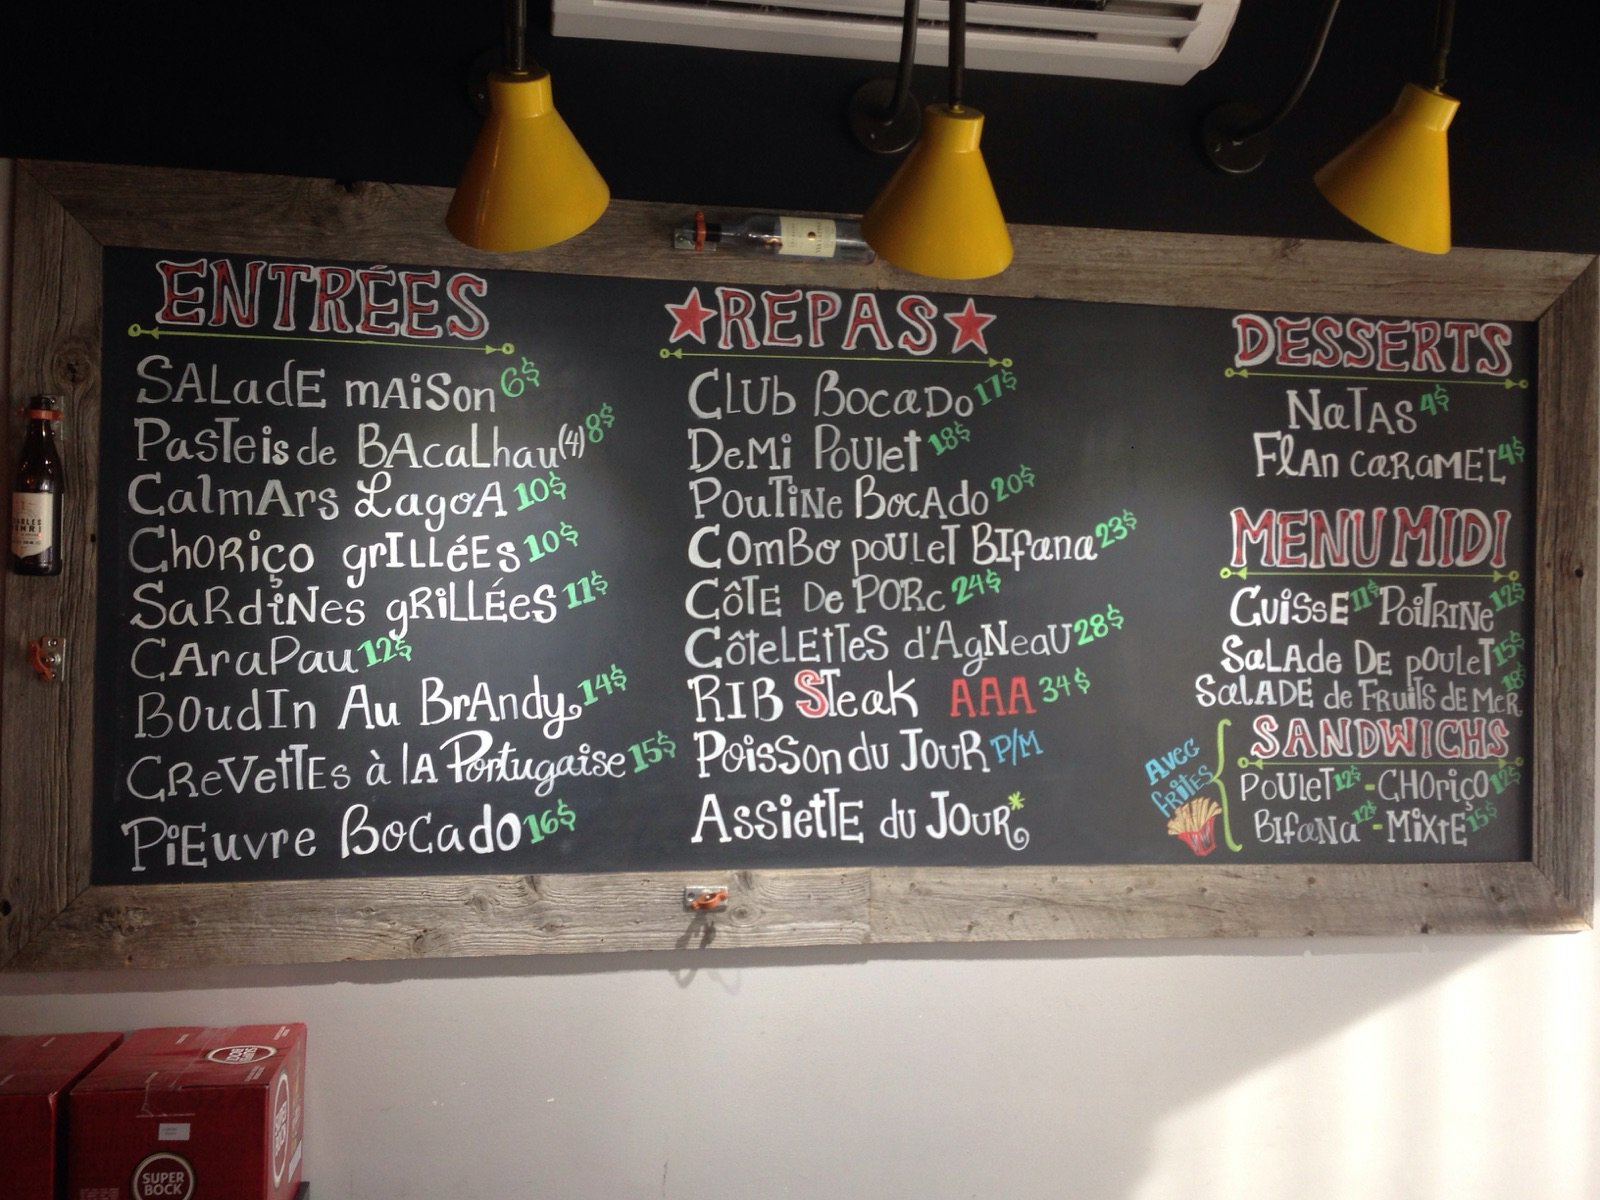 ENTRÉES
SALADE MAISON 6$
PASTEIS de BACALHAU (4) 8$
CALMARS LAGOA 10$
CHORIÇO GRILLÉES 10$
SARDINES GRILLÉES 11$
CARAPAU 12$
BOUDIN AU BRANDY 14$
CREVETTES à LA Portugaise 15$
PIEUVRE BOCADO 16$
REPAS
CLUB BOCADO 17$
DEMI POULET 18$
POUTINE BOCADO 20$
COMBO POULET BIFANA 23$
CÔTE DE PORC 24$
CÔTELETTES d'AGNEAU 28$
RIB STEAK AAA 34$
POISSON du JOUR P/M
ASSIETTE du JOUR*
DESSERTS
NATAS 4$
FLAN CARAMEL 4$
MENU MIDI
CUISSE 11$ POITRINE 12$
SALADE DE POULET 15$
SALADE de FRUITS DE MER 18$
SANDWICHS
AVEC
FRITES
POULET 12$ - CHORIÇO 12$
BIFANA 12$ - MIXTE 15$
SUPER
BOCK
SUPER
BOCK
SUPER
BOCK